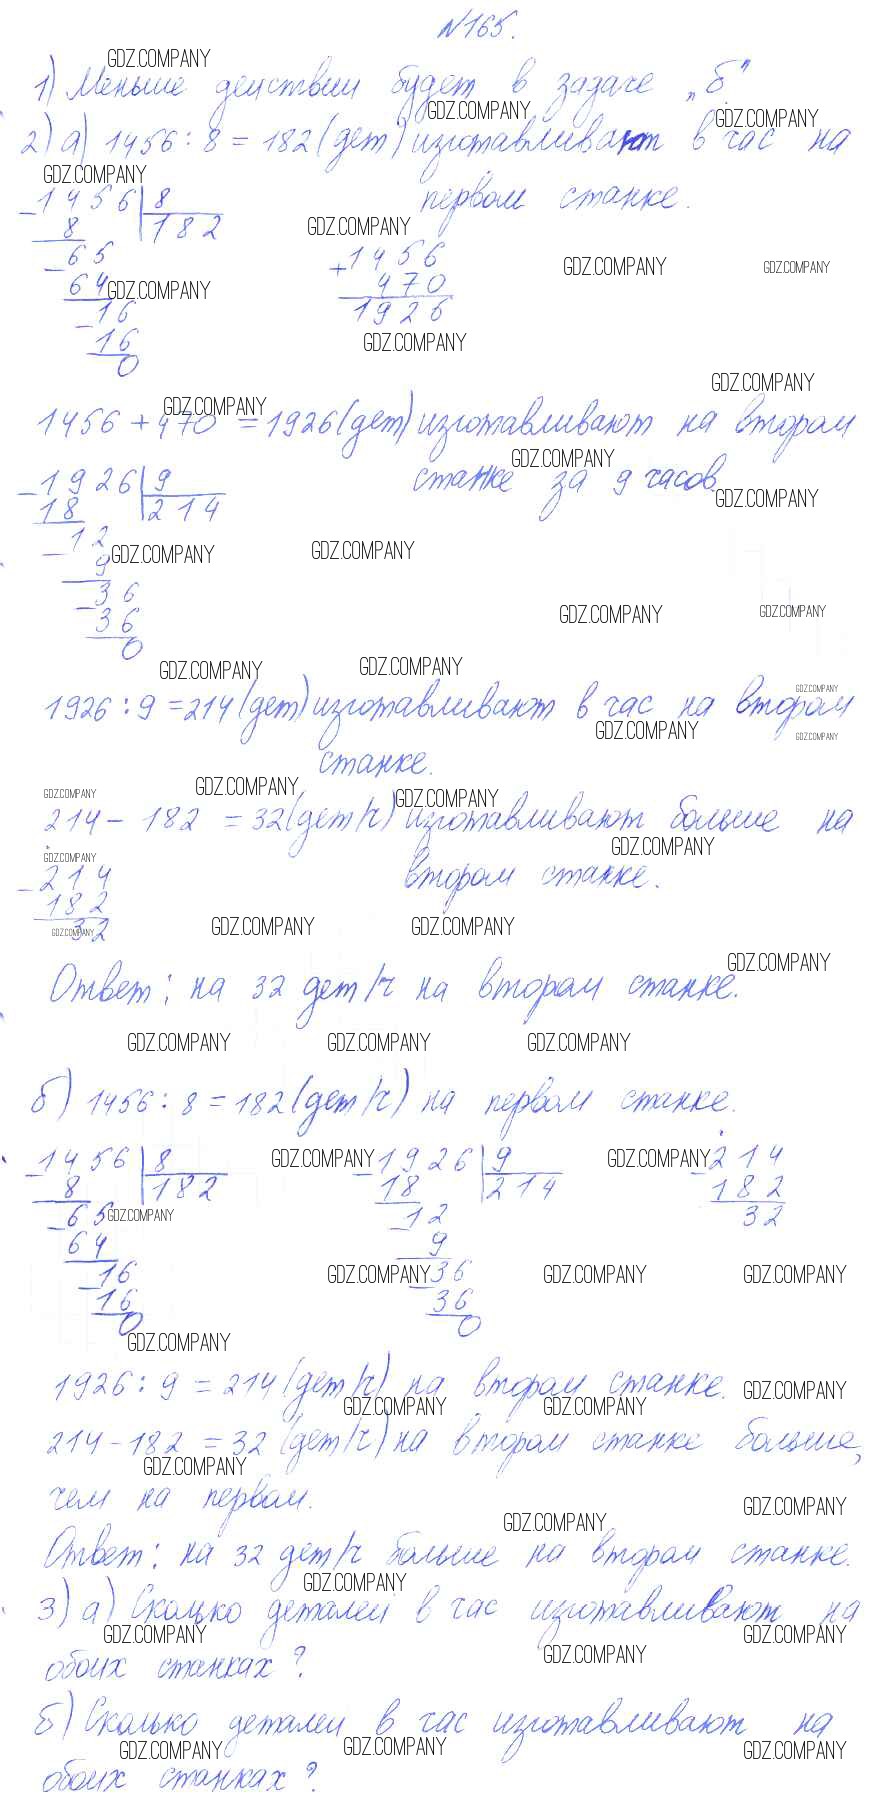 №165.
1) Меньше действий будет в задаче „б"
2) а) 1456 : 8 = 182 (дет) изготавливают в час на
первом станке.
- 1456 | 8
8 | 182
- 65
64
- 16
16
0
+ 1456
470
1926
1456 + 470 = 1926 (дет) изготавливают на втором
станке за 9 часов.
- 1926 | 9
18 | 214
- 12
9
- 36
36
0
1926 : 9 = 214 (дет) изготавливают в час на втором
станке.
214 - 182 = 32 (дет/ч) изготавливают больше на
втором станке.
- 214
182
32
Ответ: на 32 дет/ч на втором станке.
б) 1456 : 8 = 182 (дет/ч) на первом станке.
- 1456 | 8
8 | 182
- 65
64
- 16
16
0
- 1926 | 9
18 | 214
- 12
9
- 36
36
0
- 214
182
32
1926 : 9 = 214 (дет/ч) на втором станке.
214 - 182 = 32 (дет/ч) на втором станке больше,
чем на первом.
Ответ: на 32 дет/ч больше на втором станке.
3) а) Сколько деталей в час изготавливают на
обоих станках?
б) Сколько деталей в час изготавливают на
обоих станках?
GDZ.COMPANY